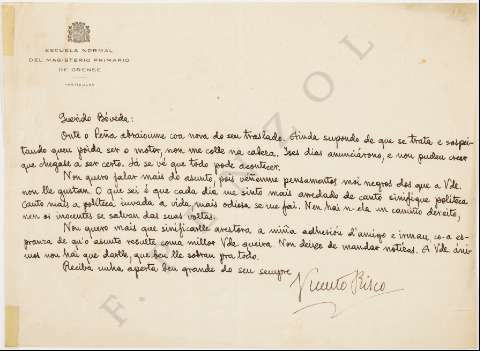 ESCUELA NORMAL
DEL MAGISTERIO PRIMARIO
DE ORENSE
PARTICULAR
Querido Bóveda:
Onte o Peña abraioume coa nova do seu traslado. Ainda supondo de que se trata e sospei-
tando queu poida ser o motor, non me colle na cabeza. Ises dias anunciárono, e non puden creer
que chegase a ser certo. Já se vé que todo pode acontecer.
Non quero falar mais do asunto, pois véñenme pensamentos moi negros dos que a Vde.
non lle gustan. O que sei é que cada dia me sinto mais arredado de canto sinifique politeca
Canto mais a politeca invade a vida, mais odiosa se me fai. Nen hai n-ela un camiño dereito,
nen os inocentes se salvan das suas voltas.
Non quero mais que sinificarlle arestora a miña adhesión d'amigo e irmau, co-a es-
pranza de qu'o asunto resulte coma millor Vde. queira. Non deixe de mandar noticas. A Vde. áni-
mos non hai que darlle, que ben lle sobran pra todo.
Reciba unha aperta ben grande do seu sempre
Vicente Risco
F. PENZOL